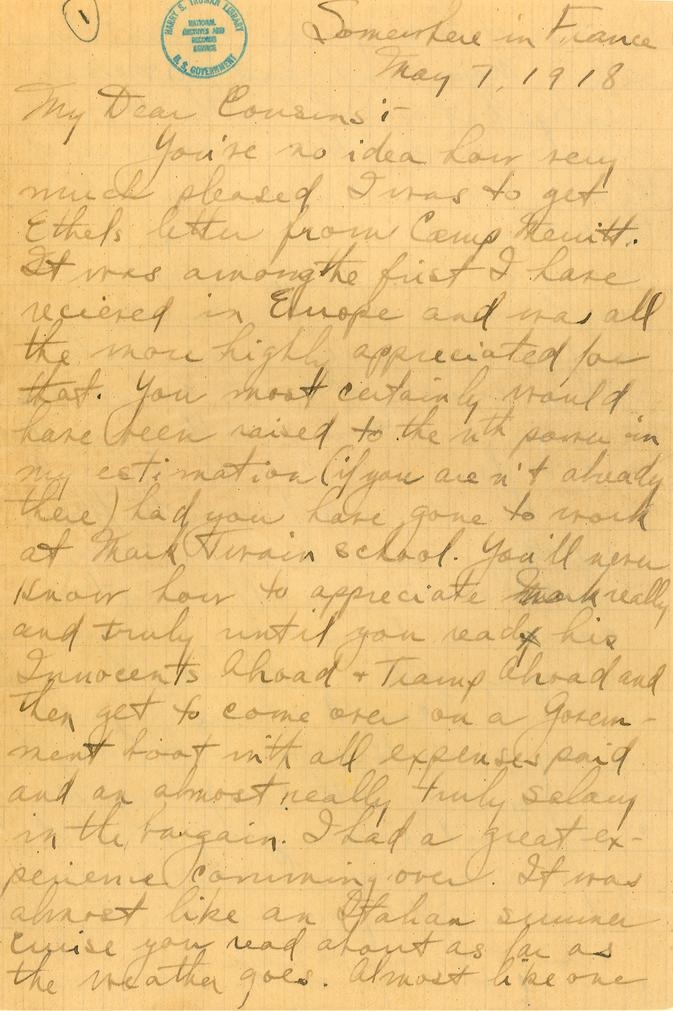 1
HARRY S. TRUMAN LIBRARY
NATIONAL
ARCHIVES AND
RECORDS
SERVICE
U. S. GOVERNMENT
Somewhere in France
May 7, 1918
My Dear Cousins:-
You've no idea how very
much pleased I was to get
Ethels letter from Camp Merritt.
It was among the first I have
recieved in Europe and was all
the more highly appreciated for
that. You most certainly would
have been raised to the nth power in
my estimation (if you are n't already
there) had you have gone to work
at Mark Twain school. You'll never
Know how to appreciate Mark really
and truly until you read his
Innocents Abroad + Tramp Abroad and
then get to come over on a Govern-
ment boat with all expenses paid
and an almost really truly salary
in the bargain. I had a great ex-
perience comming over. It was
almost like an Italian summer
cruise you read about as far as
the weather goes. Almost like one